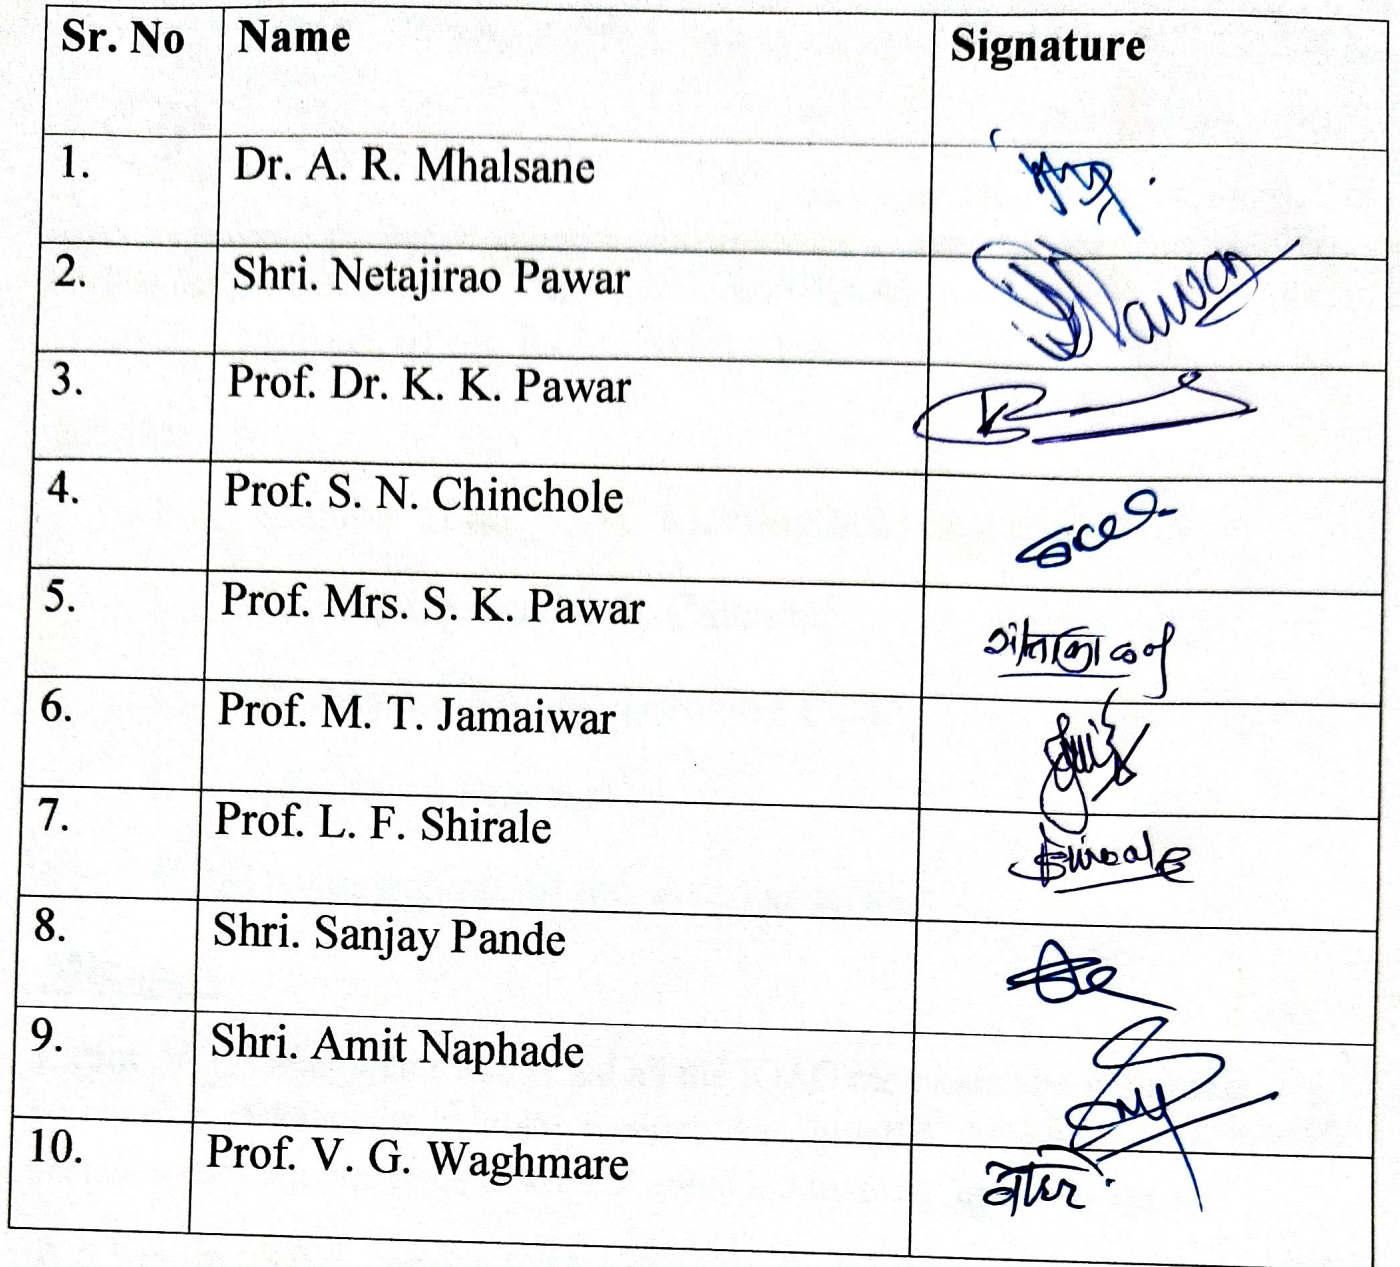 Sr. No Name Signature
1. Dr. A. R. Mhalsane
2. Shri. Netajirao Pawar Pawar
3. Prof. Dr. K. K. Pawar
4. Prof. S. N. Chinchole
5. Prof. Mrs. S. K. Pawar
6. Prof. M. T. Jamaiwar
7. Prof. L. F. Shirale
8. Shri. Sanjay Pande
9. Shri. Amit Naphade
10. Prof. V. G. Waghmare